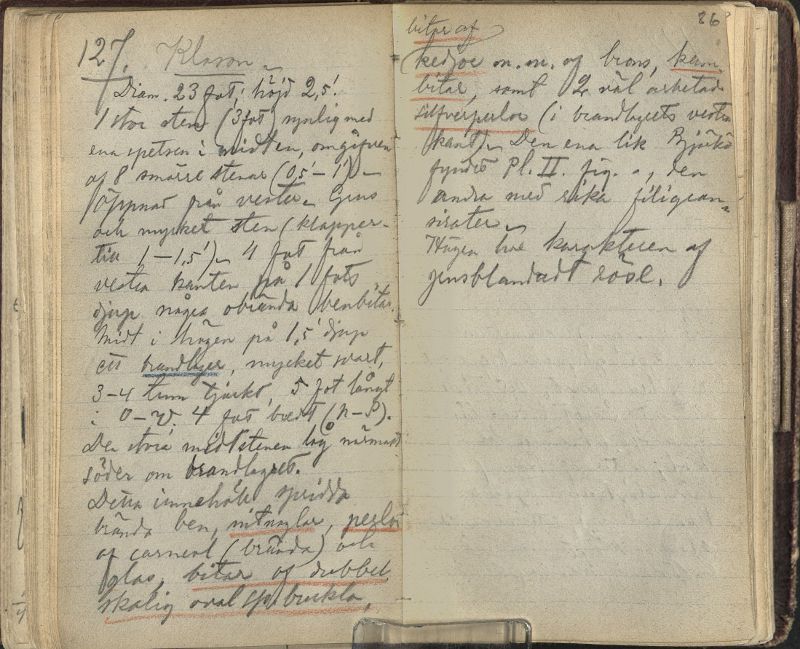 127. Klason.
Diam. 23 fot; höjd 2,5'.
1 stor sten (3 fot) synlig med
ena spetsen i midten, omgifven
af 8 smärre stenar (0,5'–1').
Öppnad från vester. Grus
och mycket sten (klapper-
1–1,5'). 4 fot från
vestra kanten på 1 fots
djup några obrända benbitar.
Midt i högen på 1,5' djup
ett brandlager, mycket svart,
3–4 tum tjockt, 5 fot långt
i O–V. 4 fot bredt (N–S).
Den stora midtstenen låg närmast
söder om brandlagret.
Detta innehöll spridda
brända ben, nitnaglar, perlor
af carneol (brända) och
glas, bitar af dubbel
skalig oval sp. buckla,
86
bitar af
kedjor m.m. af brons, kam
bitar, samt 2 väl arbetade
silfverperlor (i brandlagrets vestra
kant). Den ena lik Björkö
fyndets Pl. II. fig. , den
andra med rika filigran-
sirater.
Högen hade karakteren af
grusblandadt röse.